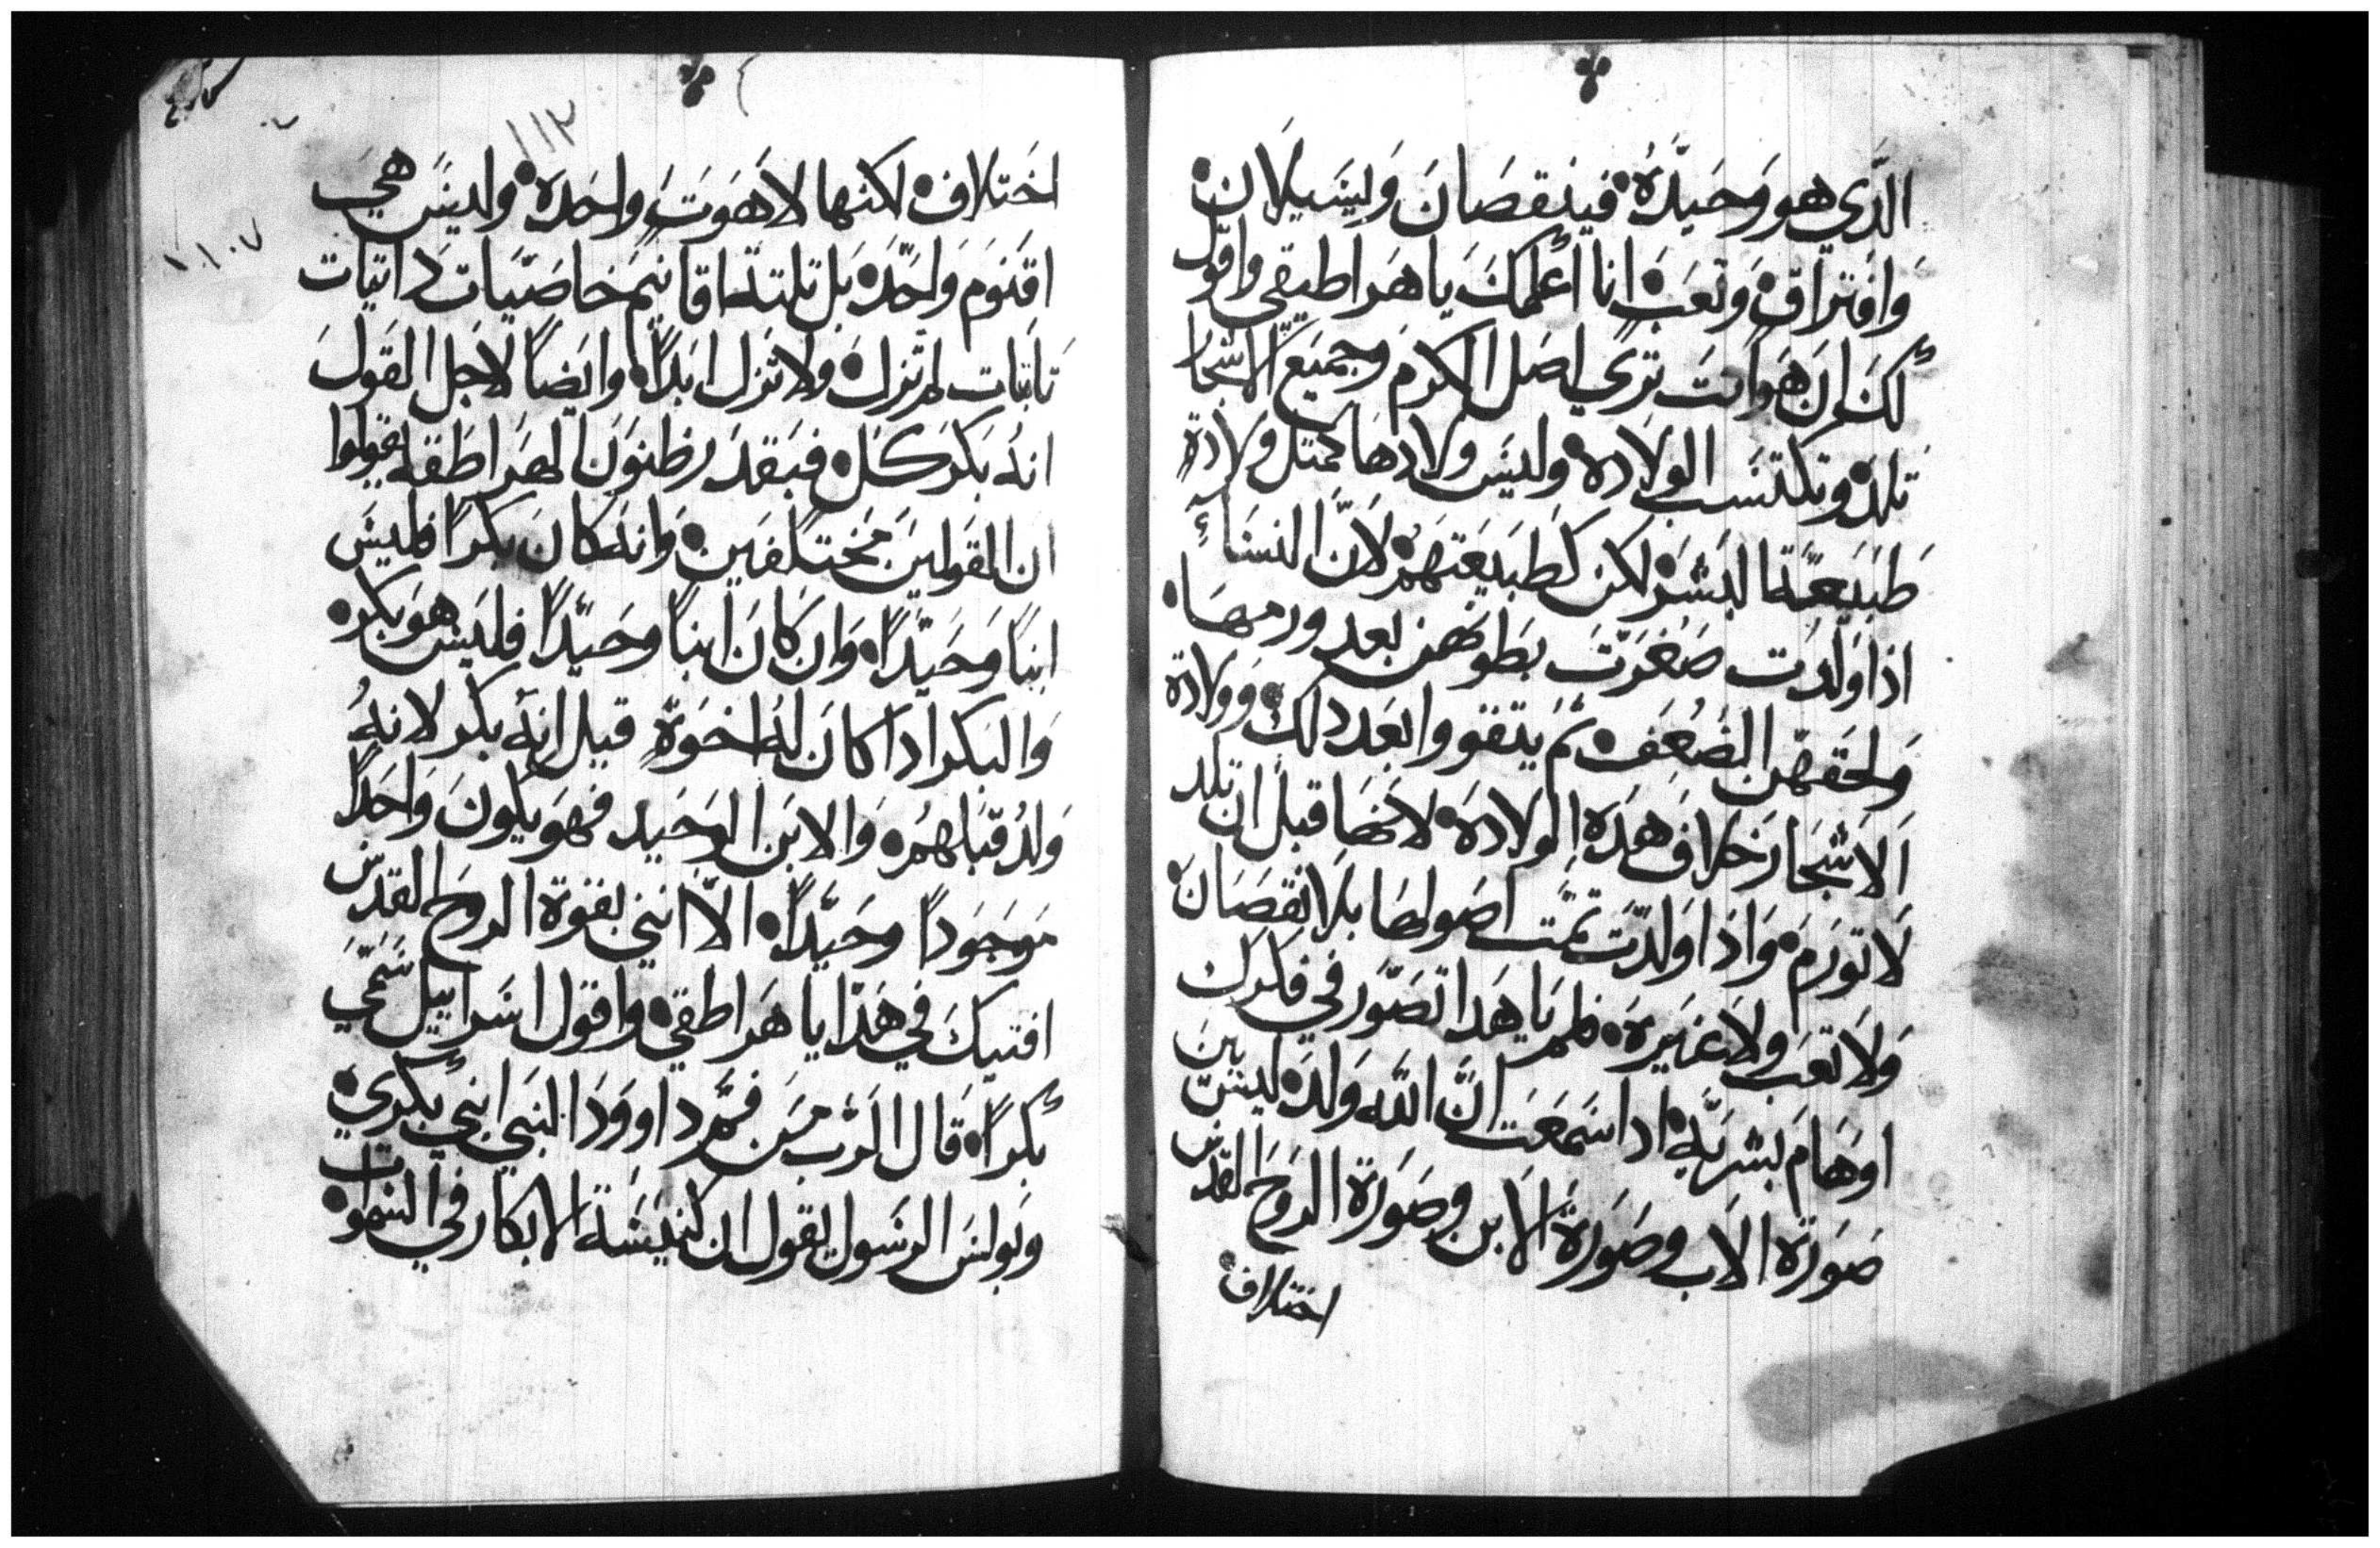 الدي هو وحيده فينقصان وليسيلان
وافتراق وتعب انا أعلمك يا هراطيقي واقول
لك ان هوانت تري اصل الكرم وجميع الاشجار
تلد وتكتسب الولاده وليس ولادها كمتل ولادة
طبيعة البشر لكن كطبيعتهم لان النسأ
اذا ولدت صغرت بطونهن بعد ورمها
ولحقهن الضعف تم يتقووا بعد دلك وولادة
الاشجار خلاف هده الولادة لانها قبل ان تلد
لا تورم واذا ولدت تمت اصولها بلا نقصان
ولا تعب ولا غيره فلم يا هدا تصور في فكرك
اوهام بشريه ادا سمعت ان الله ولد ليس بين
صورة الاب وصورة الابن وصورة الروح القدس
اختلاف
١١٣
اختلاف لكنها لاهوت واحده وليس هي
اقنوم واحده بل تلتة اقانيم خاصيات داتيات
تابتات لم تزل ولا تزل ابدا وايضا لاجل القول
انه بكر كل فبقد رظنون الهراطقه يقولوا
ان القولين مختلفين وانه كان بكرا فليس
ابنا وحيدا وان كان ابنا وحيدا فليس هو بكر
والبكر ادا كان له اخوة قيل انه بكر لانه
ولد قبلهم والابن الوحيد فهو يكون واحدا
موجودا وحيدا الا انني بقوة الروح القدس
افتيك في هدا يا هراطقي واقول اسراييل سمي
بكرا قال الرب من فم داوود النبي ابني بكري
وبولس الرسول يقول ان كنيسة الابكار في السموات